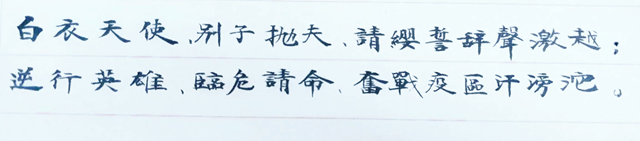 白衣天使、别子抛夫、請纓誓辞聲激越；
逆行英雄、臨危請命、奮戰疫區汗滂沱。